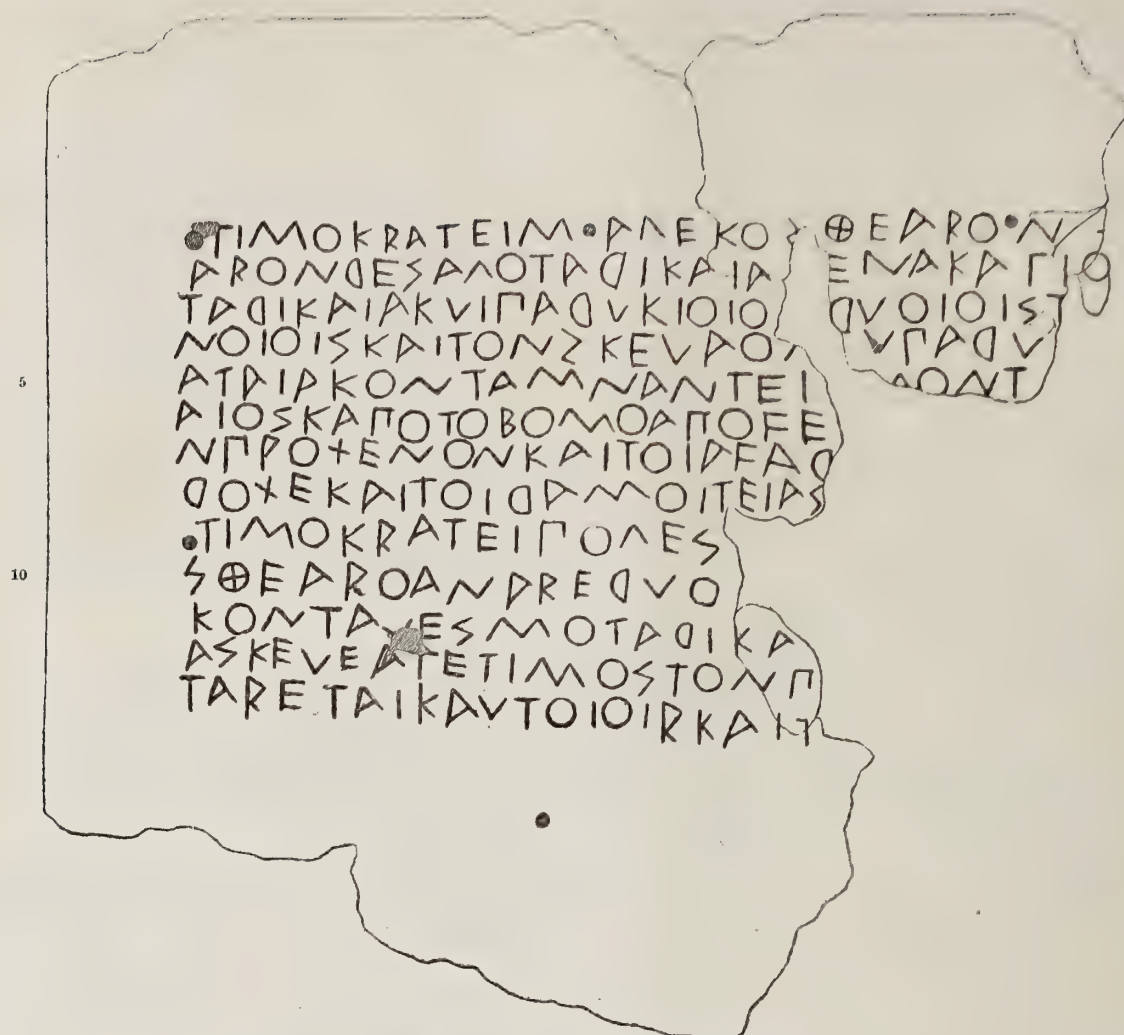 ΤΙΜΟΚΡΑΤΕΙΜ•ΑΛΕΚΟ ΘΕΑΡΟ•Ν
ΑΡΟΝΔΕΣΑΛΟΤΑΔΙΚΑΙΑ ΕΝΑΚΑΠΙΟ
ΤΑΔΙΚΑΙΑΚΥΙΠΑΔΥΚΙΟΙΟ ΔΥΟΙΟΙΣΤ
ΝΟΙΟΙΣΚΑΙΤΟΝΣΚΕΥΑΟ ΥΠΑΔΥ
5 ΑΤΡΑΙΑΚΟΝΤΑΜΝΑΝΤΕΙ ΑΟΝΤ
ΑΙΟΣΚΑΠΟΤΟΒΟΜΟΑΠΟϜΕ
ΝΠΡΟΞΕΝΟΝΚΑΙΤΟΙΑϜΑΔ
ΔΟΞΕΚΑΙΤΟΙΔΑΜΟΙΤΕΙΑΣ
•ΤΙΜΟΚΡΑΤΕΙΠΟΛΕΣ
10 ΣΘΕΑΡΟΑΝΔΡΕΔΥΟ
ΚΟΝΤΑ ΕΣΜΟΤΑΔΙΚΑ
ΑΣΚΕΥΕΑΤΕΤΙΜΟΣΤΟΝΠ
ΤΑΡΕΤΑΙΚΑΥΤΟΙΟΙΡΚΑΙΤ